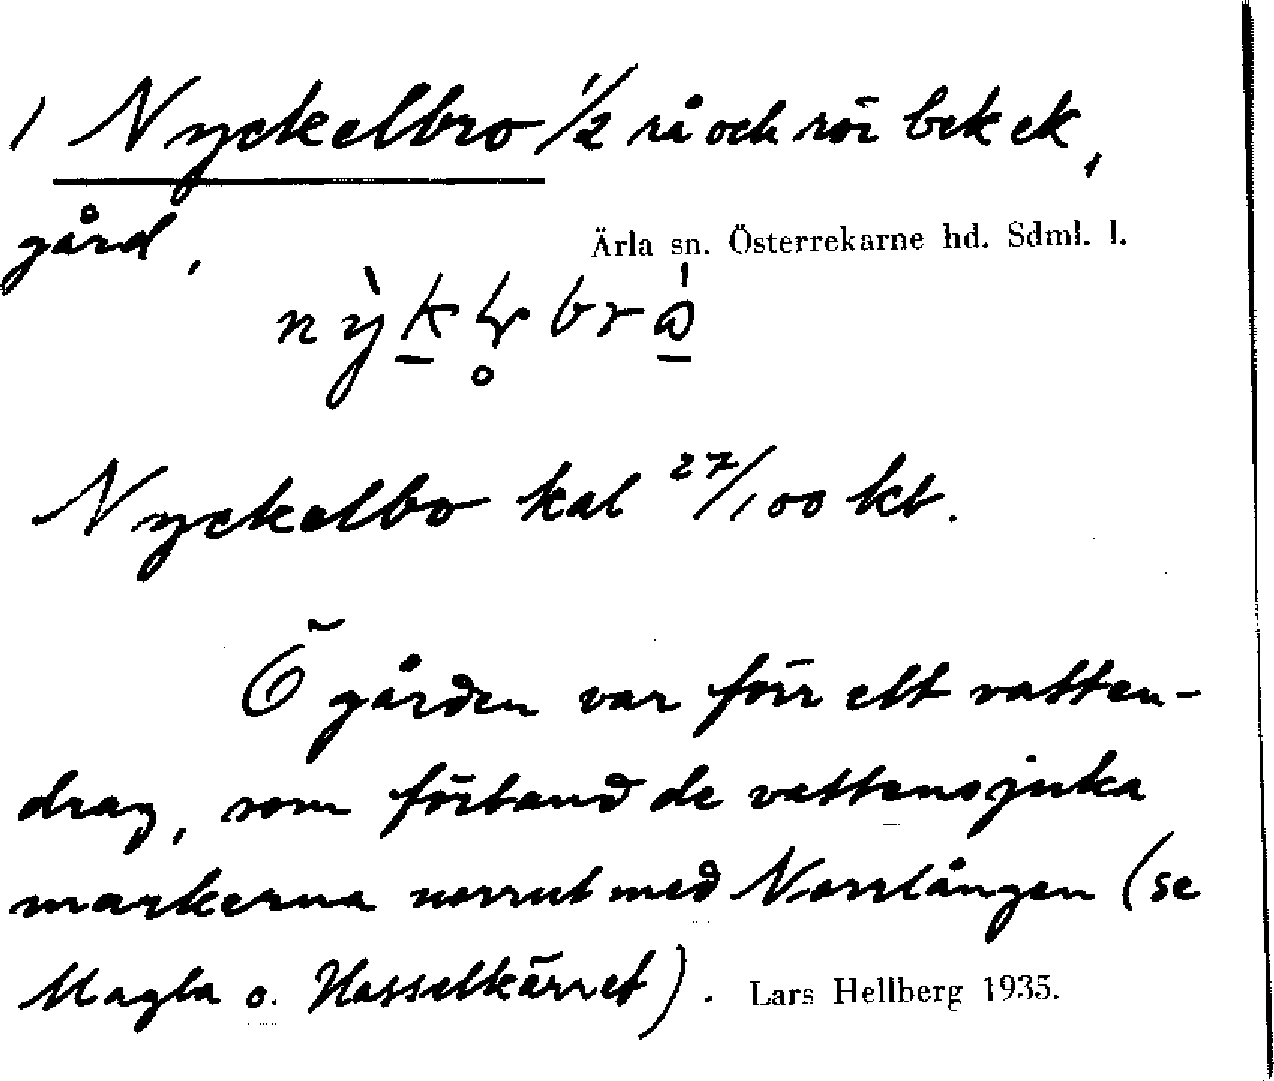 1 Nyckelbro 1/2 rå och rör bek ek,
gård,
Ärla sn. Österrekarne hd. Sdml. l.
Nyckelbo kal 27/100 kt.
Ö gården var förr ett vatten-
drag, som förband de vattensjuka
markerna norrut med Norrlången (se
Magla o. Hasselkärret).
Lars Hellberg 1935.